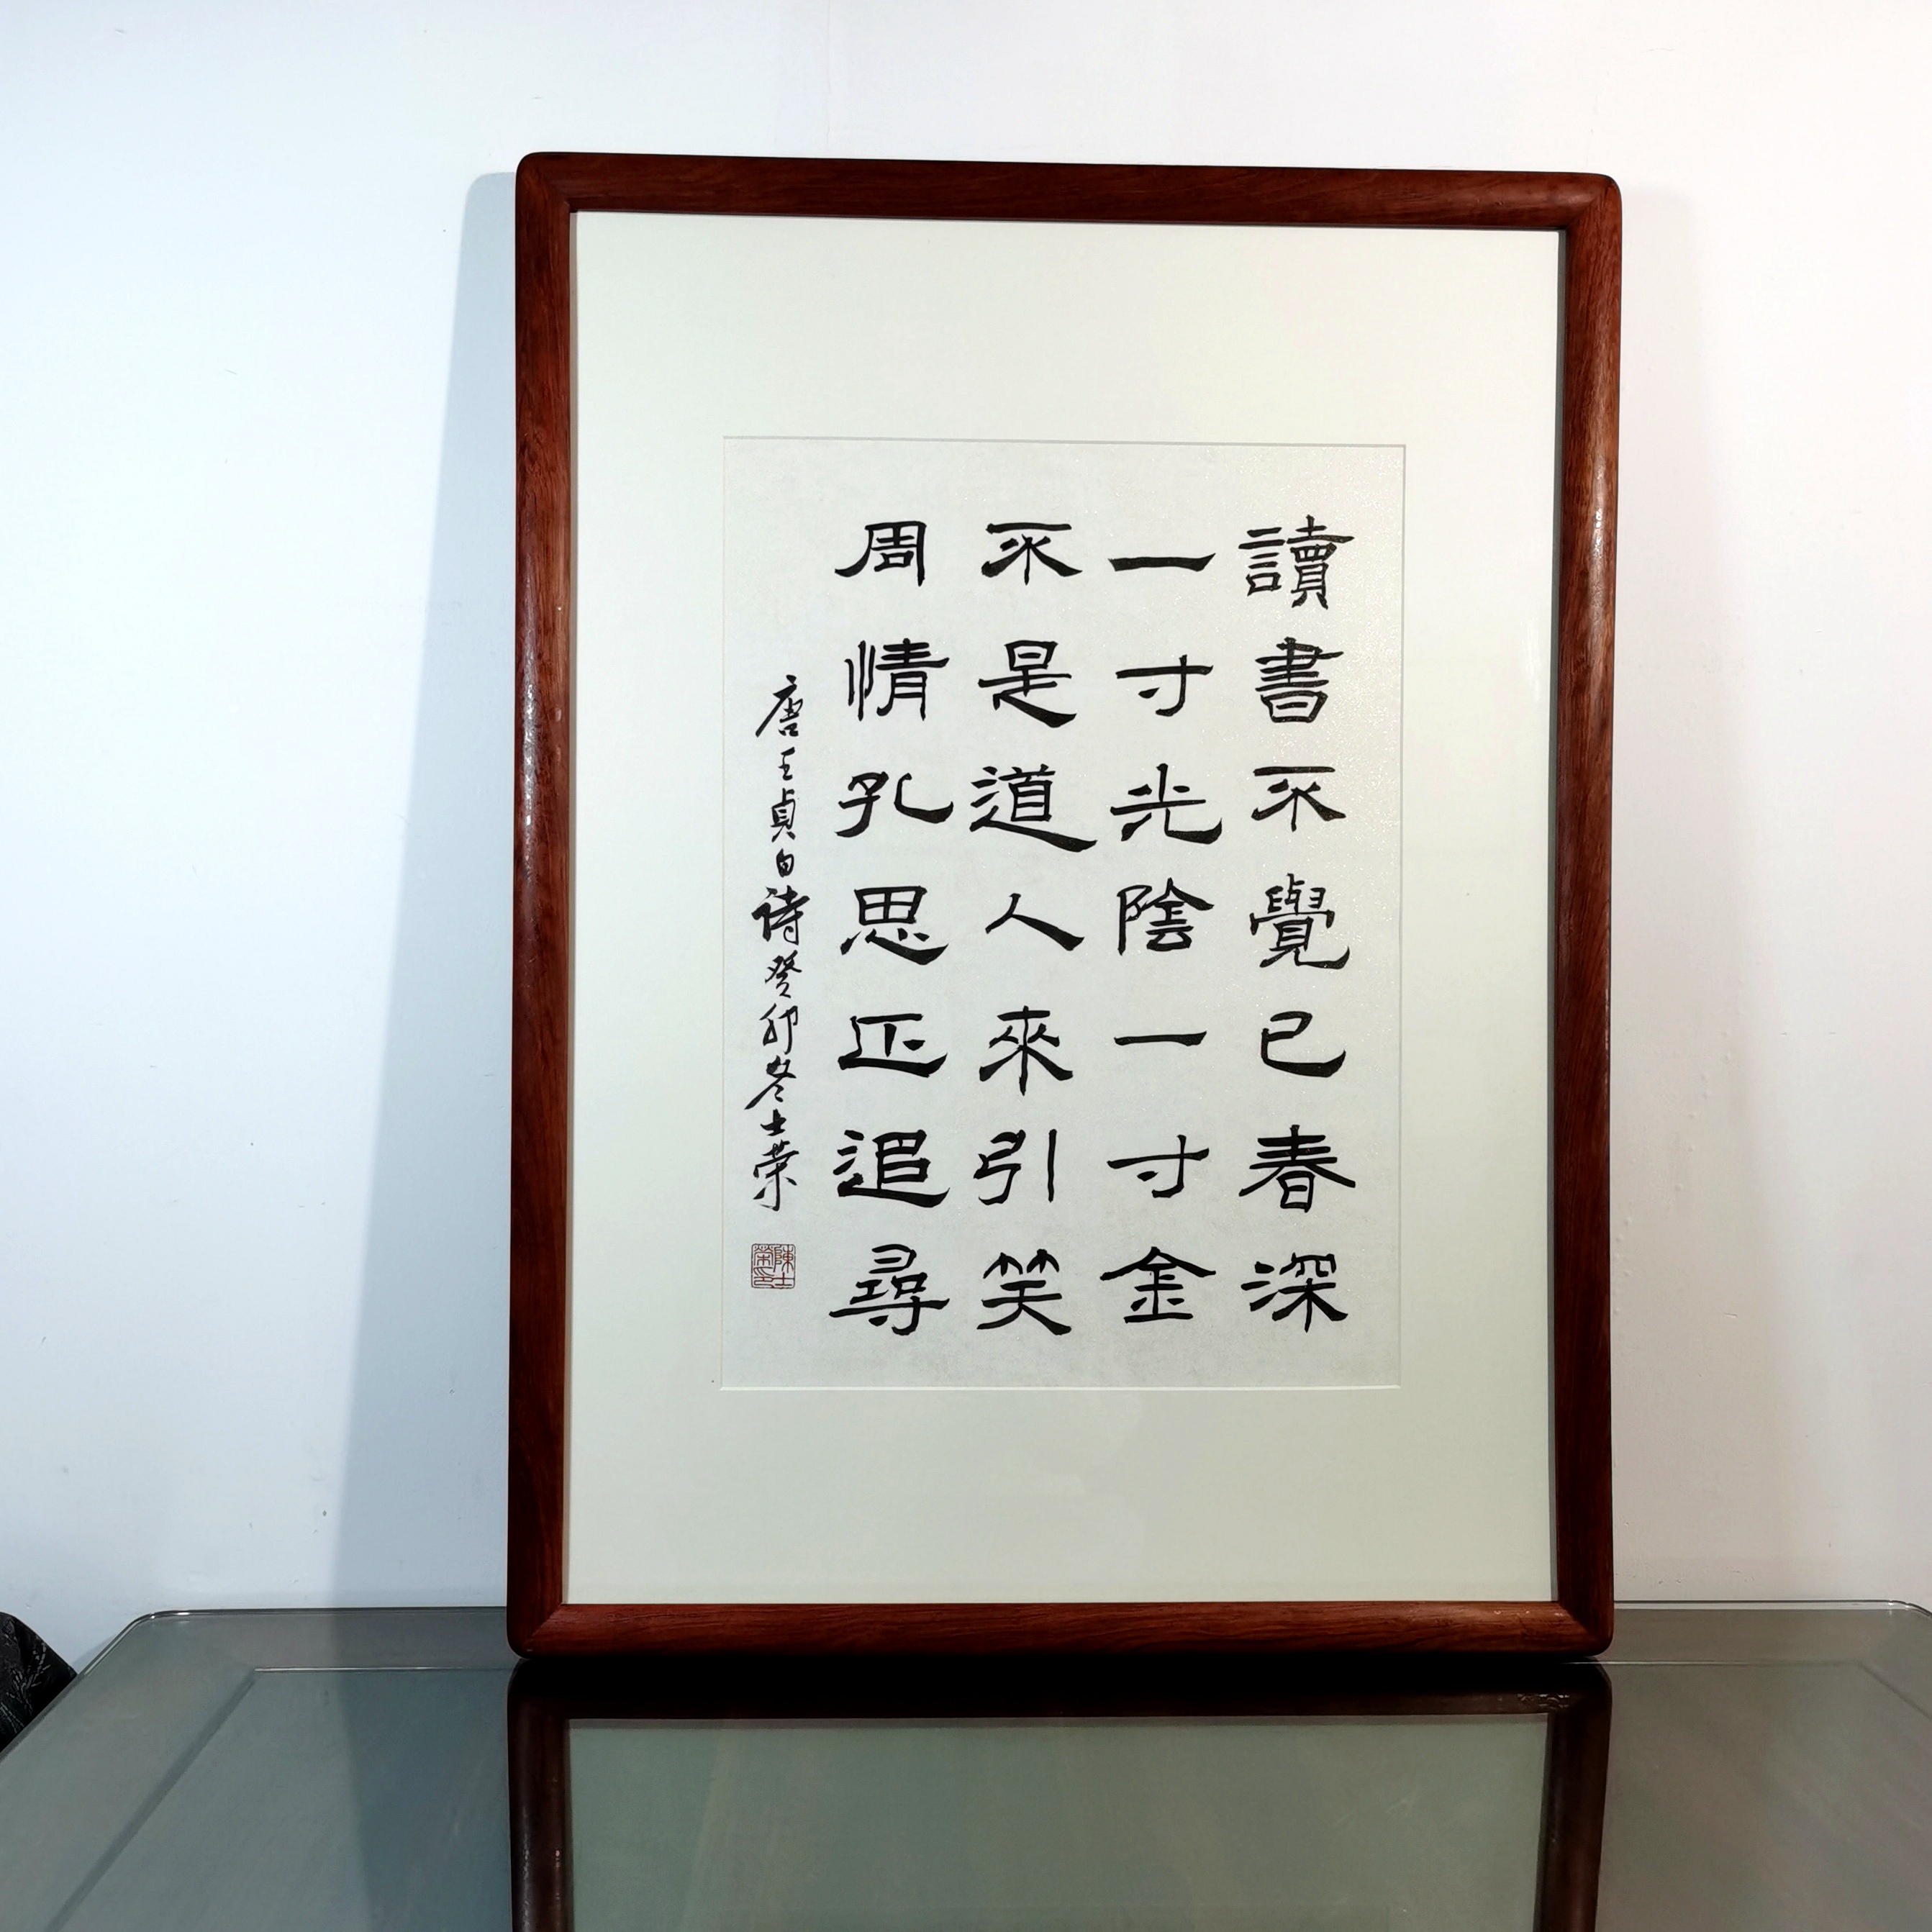 讀書不覺已春深
一寸光陰一寸金
不是道人來引笑
周情孔思正追尋
唐王貞白詩癸卯冬士荣
陳士榮印